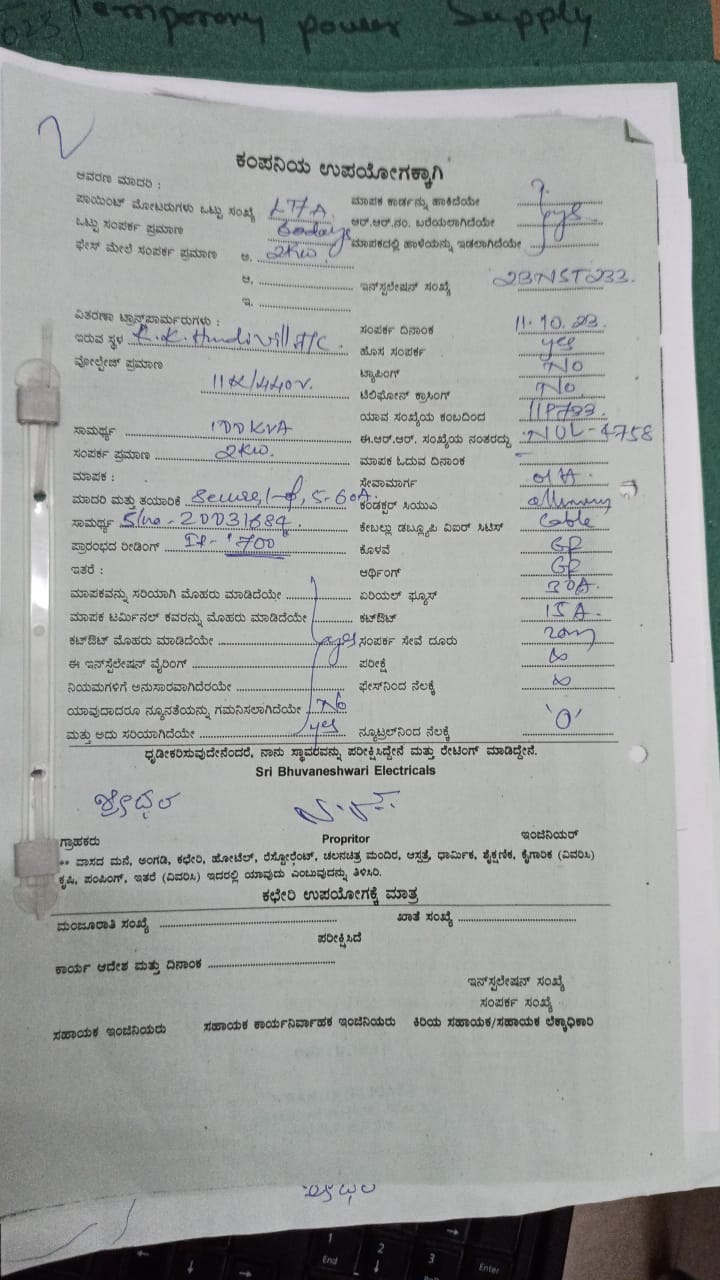 Temporary power Supply
2
ಕಂಪನಿಯ ಉಪಯೋಗಕ್ಕಾಗಿ
ಆವರಣ ಮಾದರಿ :
ಪಾಯಿಂಟ್ ಮೋಟರುಗಳು ಒಟ್ಟು ಸಂಖ್ಯೆ LT7A ಮಾಪಕ ಕಾರ್ಡನ್ನು ಹಾಕಿದೆಯೇ
ಒಟ್ಟು ಸಂಪರ್ಕ ಪ್ರಮಾಣ 60days ಆರ್.ಆರ್.ನಂ. ಬರೆಯಲಾಗಿದೆಯೇ yes
ಫೇಸ್ ಮೇಲೆ ಸಂಪರ್ಕ ಪ್ರಮಾಣ ಅ. 2KW ಮಾಪಕದಲ್ಲಿ ಹಾಳೆಯನ್ನು ಇಡಲಾಗಿದೆಯೇ
ಆ. ಇನ್‌ಸ್ಟಲೇಷನ್ ಸಂಖ್ಯೆ 23NST233.
ಇ.
ವಿತರಣಾ ಟ್ರಾನ್ಸ್‌ಪಾರ್ಮರುಗಳು : ಸಂಪರ್ಕ ದಿನಾಂಕ 11.10.23.
ಇರುವ ಸ್ಥಳ K.K. Hundi vill ಹೊಸ ಸಂಪರ್ಕ yes
ವೋಲ್ಟೇಜ್ ಪ್ರಮಾಣ ಟ್ಯಾಪಿಂಗ್ No
11K/440V. ಟೆಲಿಫೋನ್ ಕ್ರಾಸಿಂಗ್ No
ಯಾವ ಸಂಖ್ಯೆಯ ಕಂಬದಿಂದ
ಸಾಮರ್ಥ್ಯ 100KVA ಈ.ಆರ್.ಆರ್. ಸಂಖ್ಯೆಯ ನಂತರದ್ದು NUL-4758
ಸಂಪರ್ಕ ಪ್ರಮಾಣ 2KW. ಮಾಪಕ ಓದುವ ದಿನಾಂಕ -
ಮಾಪಕ : ಸೇವಾಮಾರ್ಗ O/H
ಮಾದರಿ ಮತ್ತು ತಯಾರಿಕೆ Secure, 5-60A. ಕಂಡಕ್ಟರ್ ಸಿಯುಎ
ಸಾಮರ್ಥ್ಯ S/no-20031684. ಕೇಬಲ್ಲು ಡಬ್ಲ್ಯೂಪಿ ವಿಐರ್ ಸಿಟಿಸ್ Cable
ಪ್ರಾರಂಭದ ರೀಡಿಂಗ್ IR- '700 ಕೊಳವೆ GP
ಇತರೆ : ಆರ್ಥಿಂಗ್ GP
ಮಾಪಕವನ್ನು ಸರಿಯಾಗಿ ಮೊಹರು ಮಾಡಿದೆಯೇ ಏರಿಯಲ್ ಫ್ಯೂಸ್ 30A.
ಮಾಪಕ ಟರ್ಮಿನಲ್ ಕವರನ್ನು ಮೊಹರು ಮಾಡಿದೆಯೇ ಕಟ್‌ಔಟ್ 15A.
ಕಟ್‌ಔಟ್ ಮೊಹರು ಮಾಡಿದೆಯೇ yes ಸಂಪರ್ಕ ಸೇವೆ ದೂರು 20m
ಈ ಇನ್‌ಸ್ಟೆಲೇಷನ್ ವೈರಿಂಗ್ ಪರೀಕ್ಷೆ ∞
ನಿಯಮಗಳಿಗೆ ಅನುಸಾರವಾಗಿದೆರಯೇ ಫೇಸ್‌ನಿಂದ ನೆಲಕ್ಕೆ ∞
ಯಾವುದಾದರೂ ನ್ಯೂನತೆಯನ್ನು ಗಮನಿಸಲಾಗಿದೆಯೇ No
ಮತ್ತು ಅದು ಸರಿಯಾಗಿದೆಯೇ yes ನ್ಯೂಟ್ರಲ್‌ನಿಂದ ನೆಲಕ್ಕೆ '0'
ಧೃಡೀಕರಿಸುವುದೇನೆಂದರೆ, ನಾನು ಸ್ಥಾವರವನ್ನು ಪರೀಕ್ಷಿಸಿದ್ದೇನೆ ಮತ್ತು ರೇಟಿಂಗ್ ಮಾಡಿದ್ದೇನೆ.
Sri Bhuvaneshwari Electricals
ಗ್ರಾಹಕರು Propritor ಇಂಜಿನಿಯರ್
** ವಾಸದ ಮನೆ, ಅಂಗಡಿ, ಕಛೇರಿ, ಹೋಟೆಲ್, ರೆಸ್ಟೋರೆಂಟ್, ಚಲನಚಿತ್ರ ಮಂದಿರ, ಆಸ್ಪತ್ರೆ, ಧಾರ್ಮಿಕ, ಶೈಕ್ಷಣಿಕ, ಕೈಗಾರಿಕ (ವಿವರಿಸಿ)
ಕೃಷಿ, ಪಂಪಿಂಗ್, ಇತರೆ (ವಿವರಿಸಿ) ಇದರಲ್ಲಿ ಯಾವುದು ಎಂಬುವುದನ್ನು ತಿಳಿಸಿರಿ.
ಕಛೇರಿ ಉಪಯೋಗಕ್ಕೆ ಮಾತ್ರ
ಮಂಜೂರಾತಿ ಸಂಖ್ಯೆ ಖಾತೆ ಸಂಖ್ಯೆ
ಪರೀಕ್ಷಿಸಿದೆ
ಕಾರ್ಯ ಆದೇಶ ಮತ್ತು ದಿನಾಂಕ
ಇನ್‌ಸ್ಟಲೇಷನ್ ಸಂಖ್ಯೆ
ಸಂಪರ್ಕ ಸಂಖ್ಯೆ
ಸಹಾಯಕ ಇಂಜಿನಿಯರು ಸಹಾಯಕ ಕಾರ್ಯನಿರ್ವಾಹಕ ಇಂಜಿನಿಯರು ಕಿರಿಯ ಸಹಾಯಕ/ಸಹಾಯಕ ಲೆಕ್ಕಾಧಿಕಾರಿ
1 End 2 3 Enter